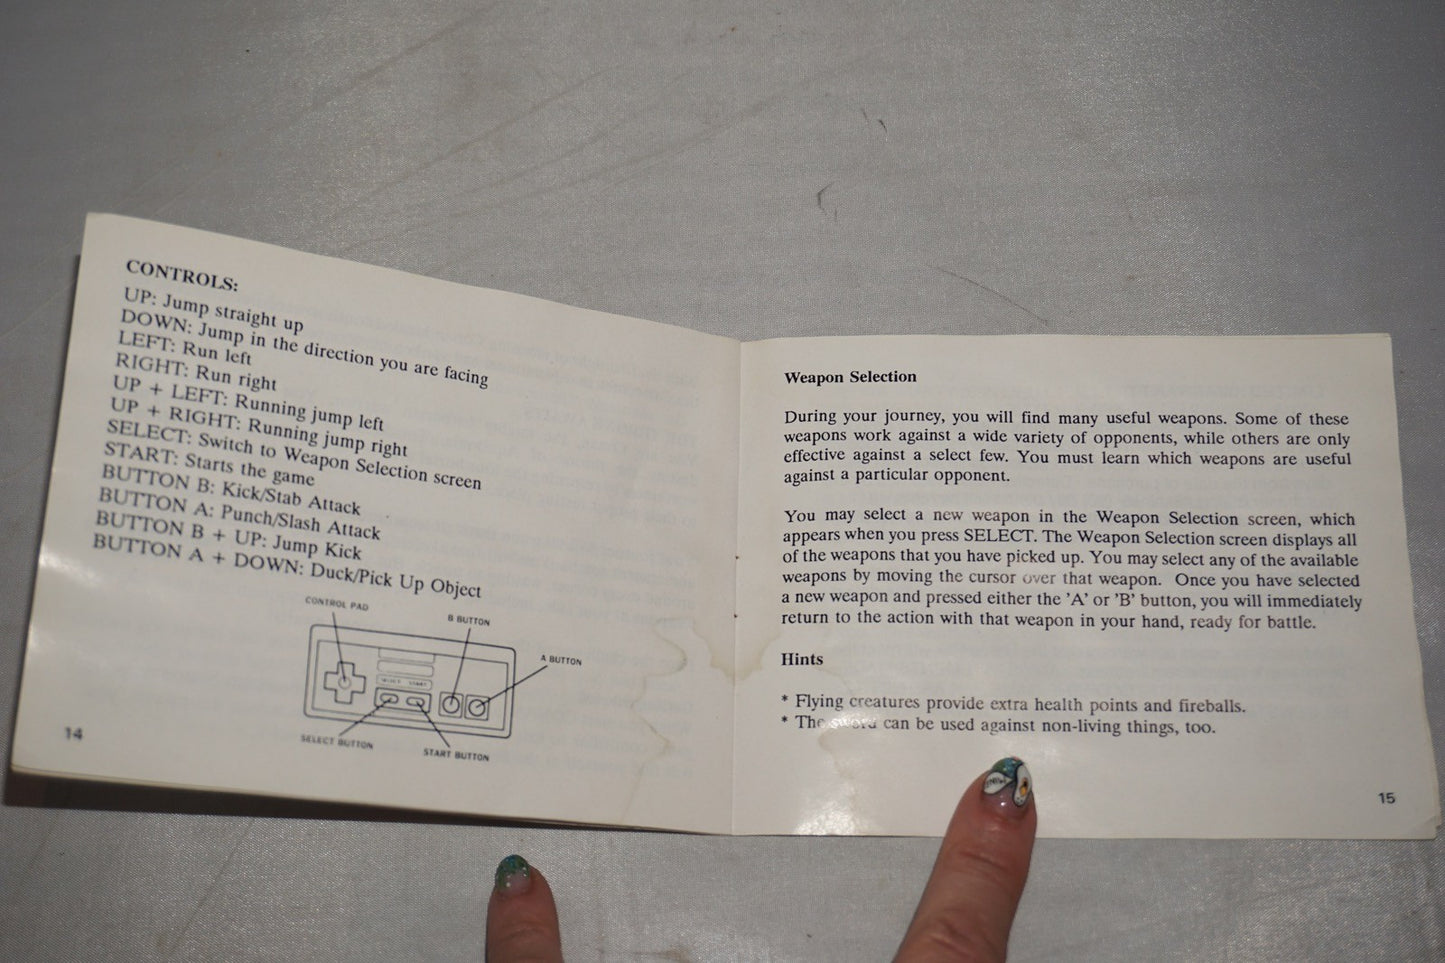 CONTROLS:
UP: Jump straight up
DOWN: Jump in the direction you are facing
LEFT: Run left
RIGHT: Run right
UP + LEFT: Running jump left
UP + RIGHT: Running jump right
SELECT: Switch to Weapon Selection screen
START: Starts the game
BUTTON B: Kick/Stab Attack
BUTTON A: Punch/Slash Attack
BUTTON B + UP: Jump Kick
BUTTON A + DOWN: Duck/Pick Up Object
CONTROL PAD
B BUTTON
A BUTTON
SELECT START
SELECT BUTTON
START BUTTON
14
Weapon Selection
During your journey, you will find many useful weapons. Some of these
weapons work against a wide variety of opponents, while others are only
effective against a select few. You must learn which weapons are useful
against a particular opponent.
You may select a new weapon in the Weapon Selection screen, which
appears when you press SELECT. The Weapon Selection screen displays all
of the weapons that you have picked up. You may select any of the available
weapons by moving the cursor over that weapon. Once you have selected
a new weapon and pressed either the 'A' or 'B' button, you will immediately
return to the action with that weapon in your hand, ready for battle.
Hints
* Flying creatures provide extra health points and fireballs.
* The sword can be used against non-living things, too.
15